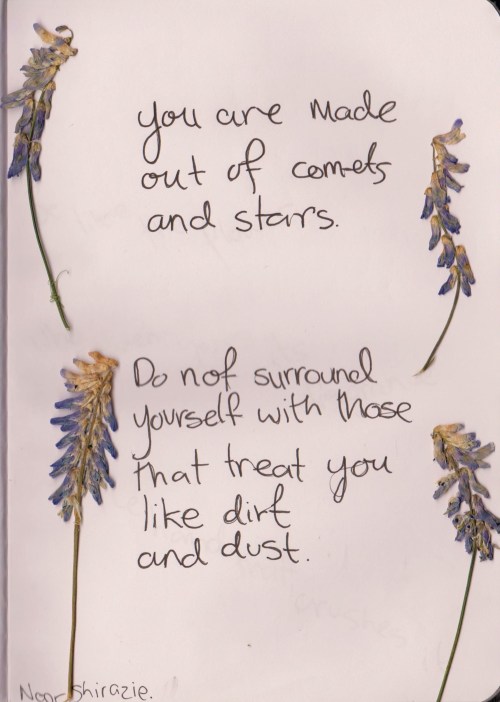 you are made
out of comets
and stars.
Do not surround
yourself with those
that treat you
like dirt
and dust.
Noor Shirazie.